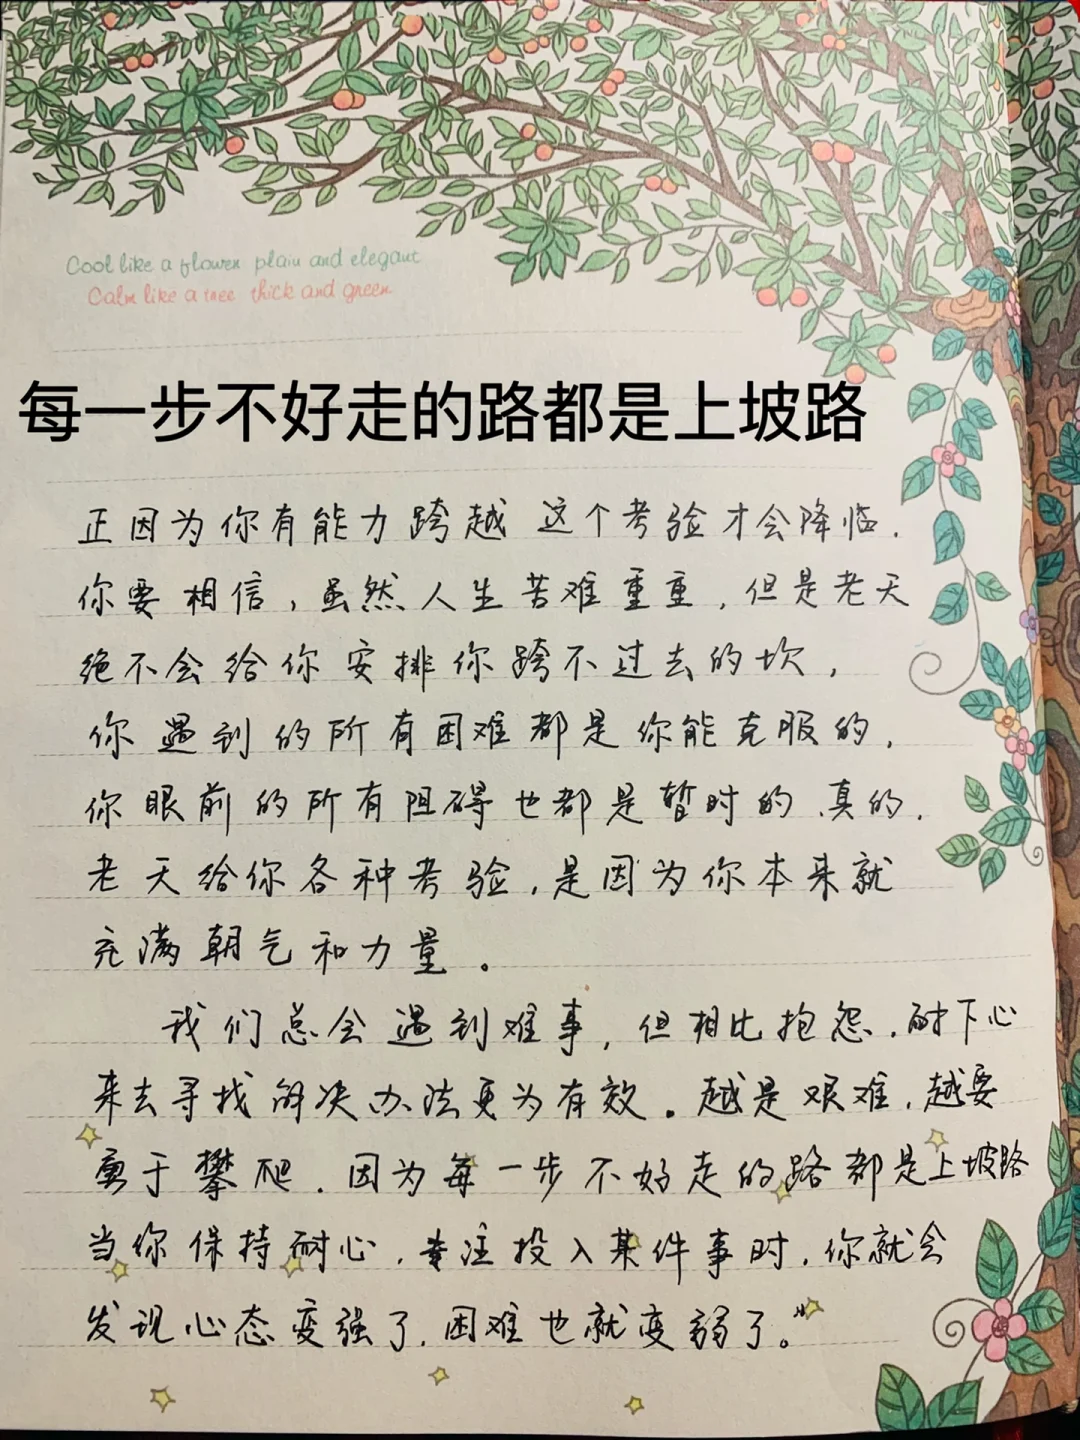 Cool like a flower plain and elegant
Calm like a tree thick and green
每一步不好走的路都是上坡路
正因为你有能力跨越 这个考验才会降临.
你要相信,虽然人生苦难重重,但是老天
绝不会给你安排你跨不过去的坎,
你遇到的所有困难都是你能克服的,
你眼前的所有阻碍也都是暂时的.真的.
老天给你各种考验,是因为你本来就
充满朝气和力量。
我们总会遇到难事,但相比抱怨.耐下心
来去寻找解决办法更为有效。越是艰难,越要
勇于攀爬.因为每一步不好走的路都是上坡路
当你保持耐心,专注投入某件事时.你就会
发现心态变强了.困难也就变弱了。"